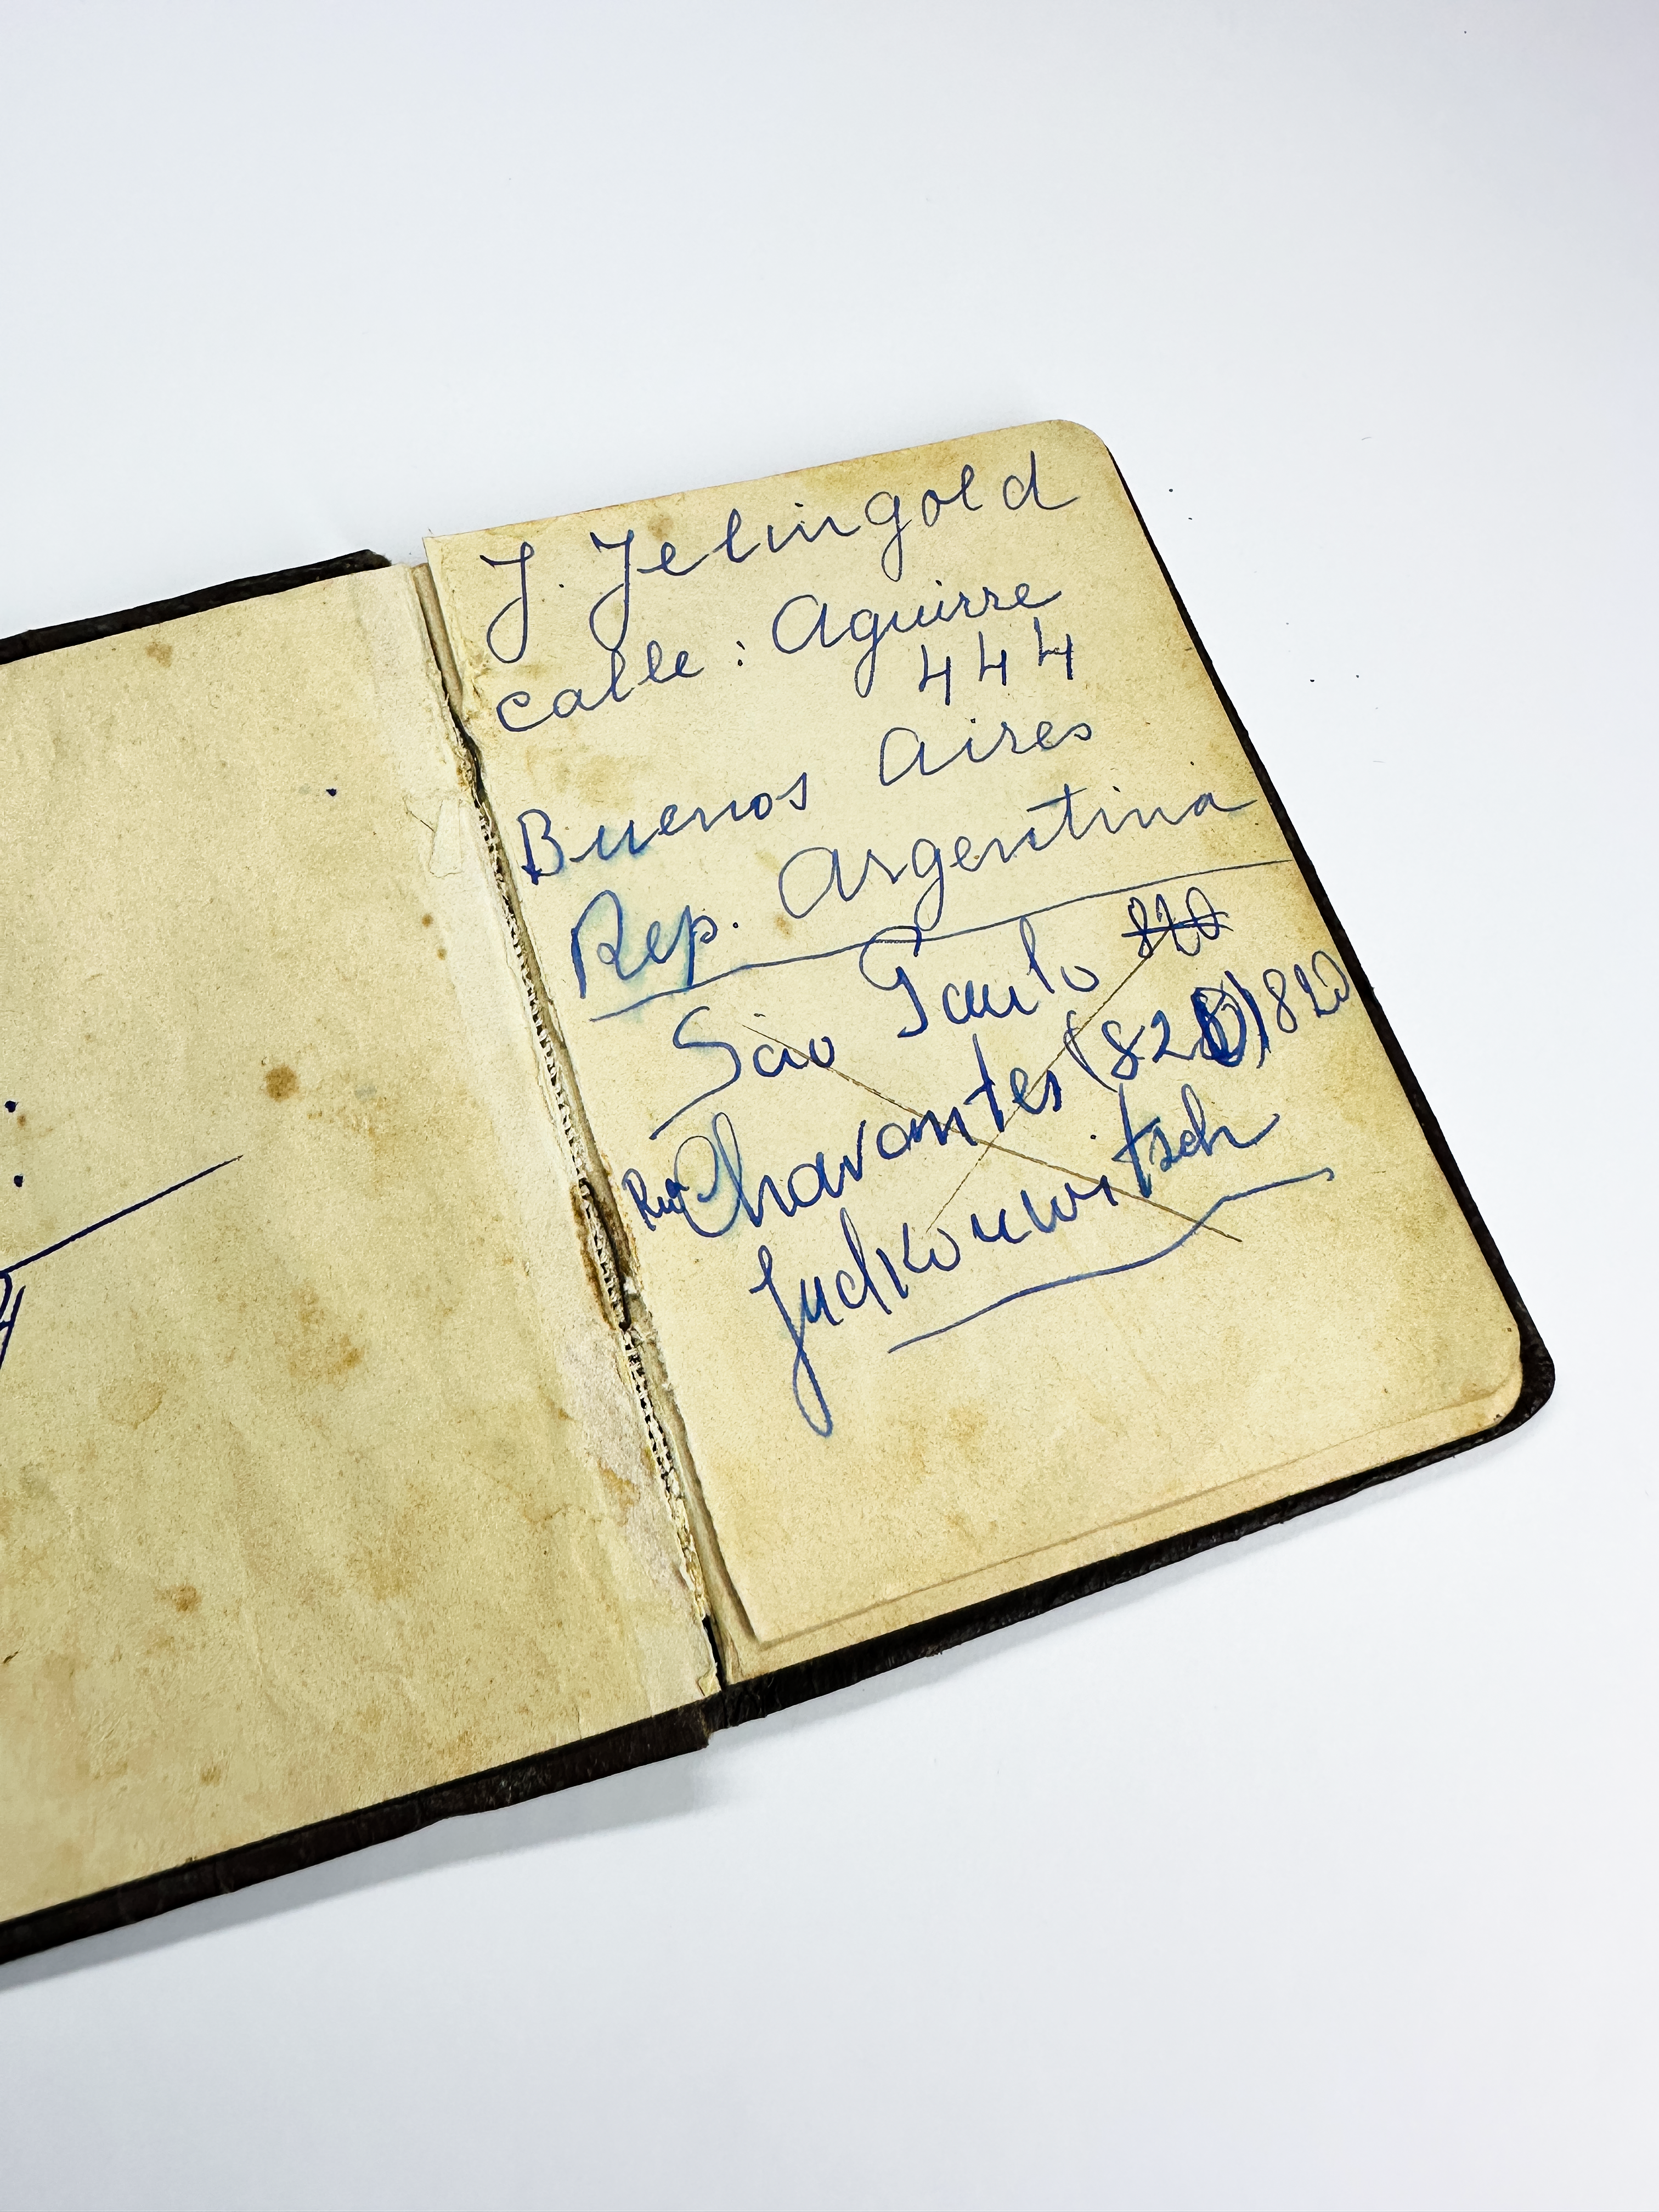 J. Jelingold
calle: Aguirre
444
Buenos Aires
Rep. Argentina
São Paulo 820
Rua Chavantes (820) 820
Judkouwitsch